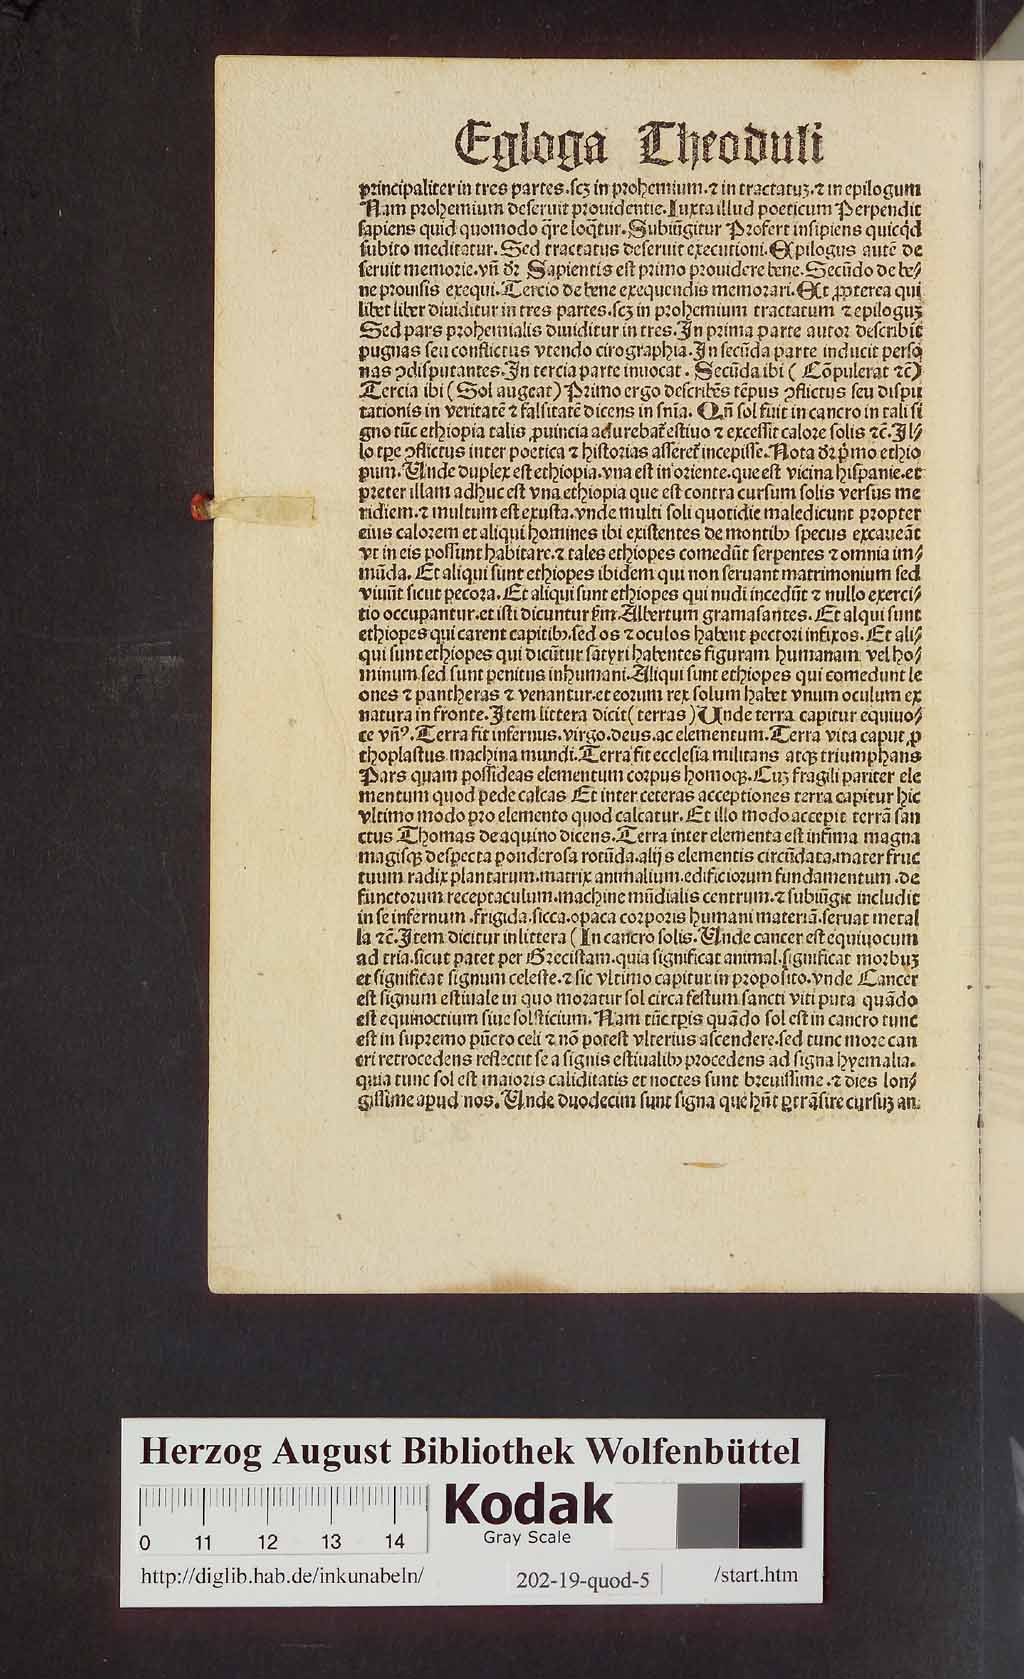 Egloga Theoduli
principaliter in tres partes.scꝫ in prohemium.⁊ in tractatuꝫ.⁊ in epilogum
Nam prohemium deseruit prouidentie.Iuxta illud poeticum Perpendit
sapiens quid quomodo q̄re loq̄tur.Subiūgitur Profert insipiens quicq̄d
subito meditatur.Sed tractatus deseruit executioni.Epilogus autē de
seruit memorie.vn̄ dr̄ Sapientis est primo prouidere bene.Secūdo de be⸗
ne prouisis exequi.Tercio de bene exequendis memorari.Et ꝓpterea qui
libet liber diuiditur in tres partes.scꝫ in prohemium tractatum ⁊ epiloguꝫ
Sed pars prohemialis diuiditur in tres.In prima parte autor describit
pugnas seu conflictus vtendo cirographia.In secūda parte inducit perso
nas ꝯdisputantes.In tercia parte inuocat. Secūda ibi (Cōpulerat ⁊c̄)
Tercia ibi (Sol augeat) Primo ergo describēs tēpus ꝯflictus seu dispu
tationis in veritatē ⁊ falsitatē dicens in sn̄ia. Qn̄ sol fuit in cancro in tali si
gno tūc ethiopia talis ꝓuincia adurebat̄ estiuo ⁊ excessit calore solis ⁊c̄.Il⸗
lo tꝑe ꝯflictus inter poetica ⁊ historias asseret̄ incepisse.Nota dr̄ p̄mo ethio
pum.Unde duplex est ethiopia.vna est in oriente.que est vicina hispanie.et
preter illam adhuc est vna ethiopia que est contra cursum solis versus me
ridiem.⁊ multum est exusta.vnde multi soli quotidie maledicunt propter
eius calorem et aliqui homines ibi existentes de montibꝫ specus excaueāt
vt in eis possunt habitare.⁊ tales ethiopes comedūt serpentes ⁊ omnia im⸗
mūda. Et aliqui sunt ethiopes ibidem qui non seruant matrimonium sed
viuūt sicut pecora. Et aliqui sunt ethiopes qui nudi incedūt ⁊ nullo exerci⸗
tio occupantur.et isti dicuntur ẜm.Albertum gramasantes. Et alqui sunt
ethiopes qui carent capitibꝫ.sed os ⁊ oculos habent pectori infixos. Et ali⸗
qui sunt ethiopes qui dicūtur satyri habentes figuram humanam vel ho⸗
minum.sed sunt penitus inhumani.Aliqui sunt ethiopes qui comedunt le
ones ⁊ pantheras ⁊ venantur.et eorum rex solum habet vnum oculum ex
natura in fronte.Item littera dicit (terras) Unde terra capitur equiuo⸗
ce vn̄ꝰ. Terra fit infernus.virgo.deus.ac elementum.Terra vita caput ꝓ
thoplastus machina mundi.Terra fit ecclesia militans atqꝫ triumphans
Pars quam possideas elementum corpus homoqꝫ.Cuꝫ fragili pariter ele
mentum quod pede calcas Et inter ceteras acceptiones terra capitur hic
vltimo modo pro elemento quod calcatur. Et illo modo accepit terrā san
ctus Thomas de aquino dicens.Terra inter elementa est infima magna
magisqꝫ despecta ponderosa rotūda.alijs elementis circūdata.mater fruc
tuum radix plantarum.matrix animalium.edificiorum fundamentum .de
functorum receptaculum.machine mūdialis centrum.⁊ subiūgit includit
in se infernum .frigida.sicca.opaca corporis humani materiā.seruat metal
la ⁊c̄.Item dicitur in littera (In cancro solis. Unde cancer est equiuocum
ad tria.sicut patet per Grecistam.quia significat animal.significat morbuꝫ
et significat signum celeste.⁊ sic vltimo capitur in proposito.vnde Cancer
est signum estiuale in quo moratur sol circa festum sancti viti puta quādo
est equinoctium siue solsticium. Nam tūc tꝑis quādo sol est in cancro tunc
est in supremo pūcto celi ⁊ nō potest vlterius ascendere.sed tunc more can
cri retrocedens reflectit se a signis estiualibꝫ procedens ad signa hyemalia.
quia tunc sol est maioris caliditatis et noctes sunt breuissime.⁊ dies lon⸗
gissime apud nos. Unde duodecim sunt signa que hn̄t ꝑtrāsire cursuꝫ an
Herzog August Bibliothek Wolfenbüttel
0 11 12 13 14
Kodak
Gray Scale
http://diglib.hab.de/inkunabeln/ 202-19-quod-5 /start.htm